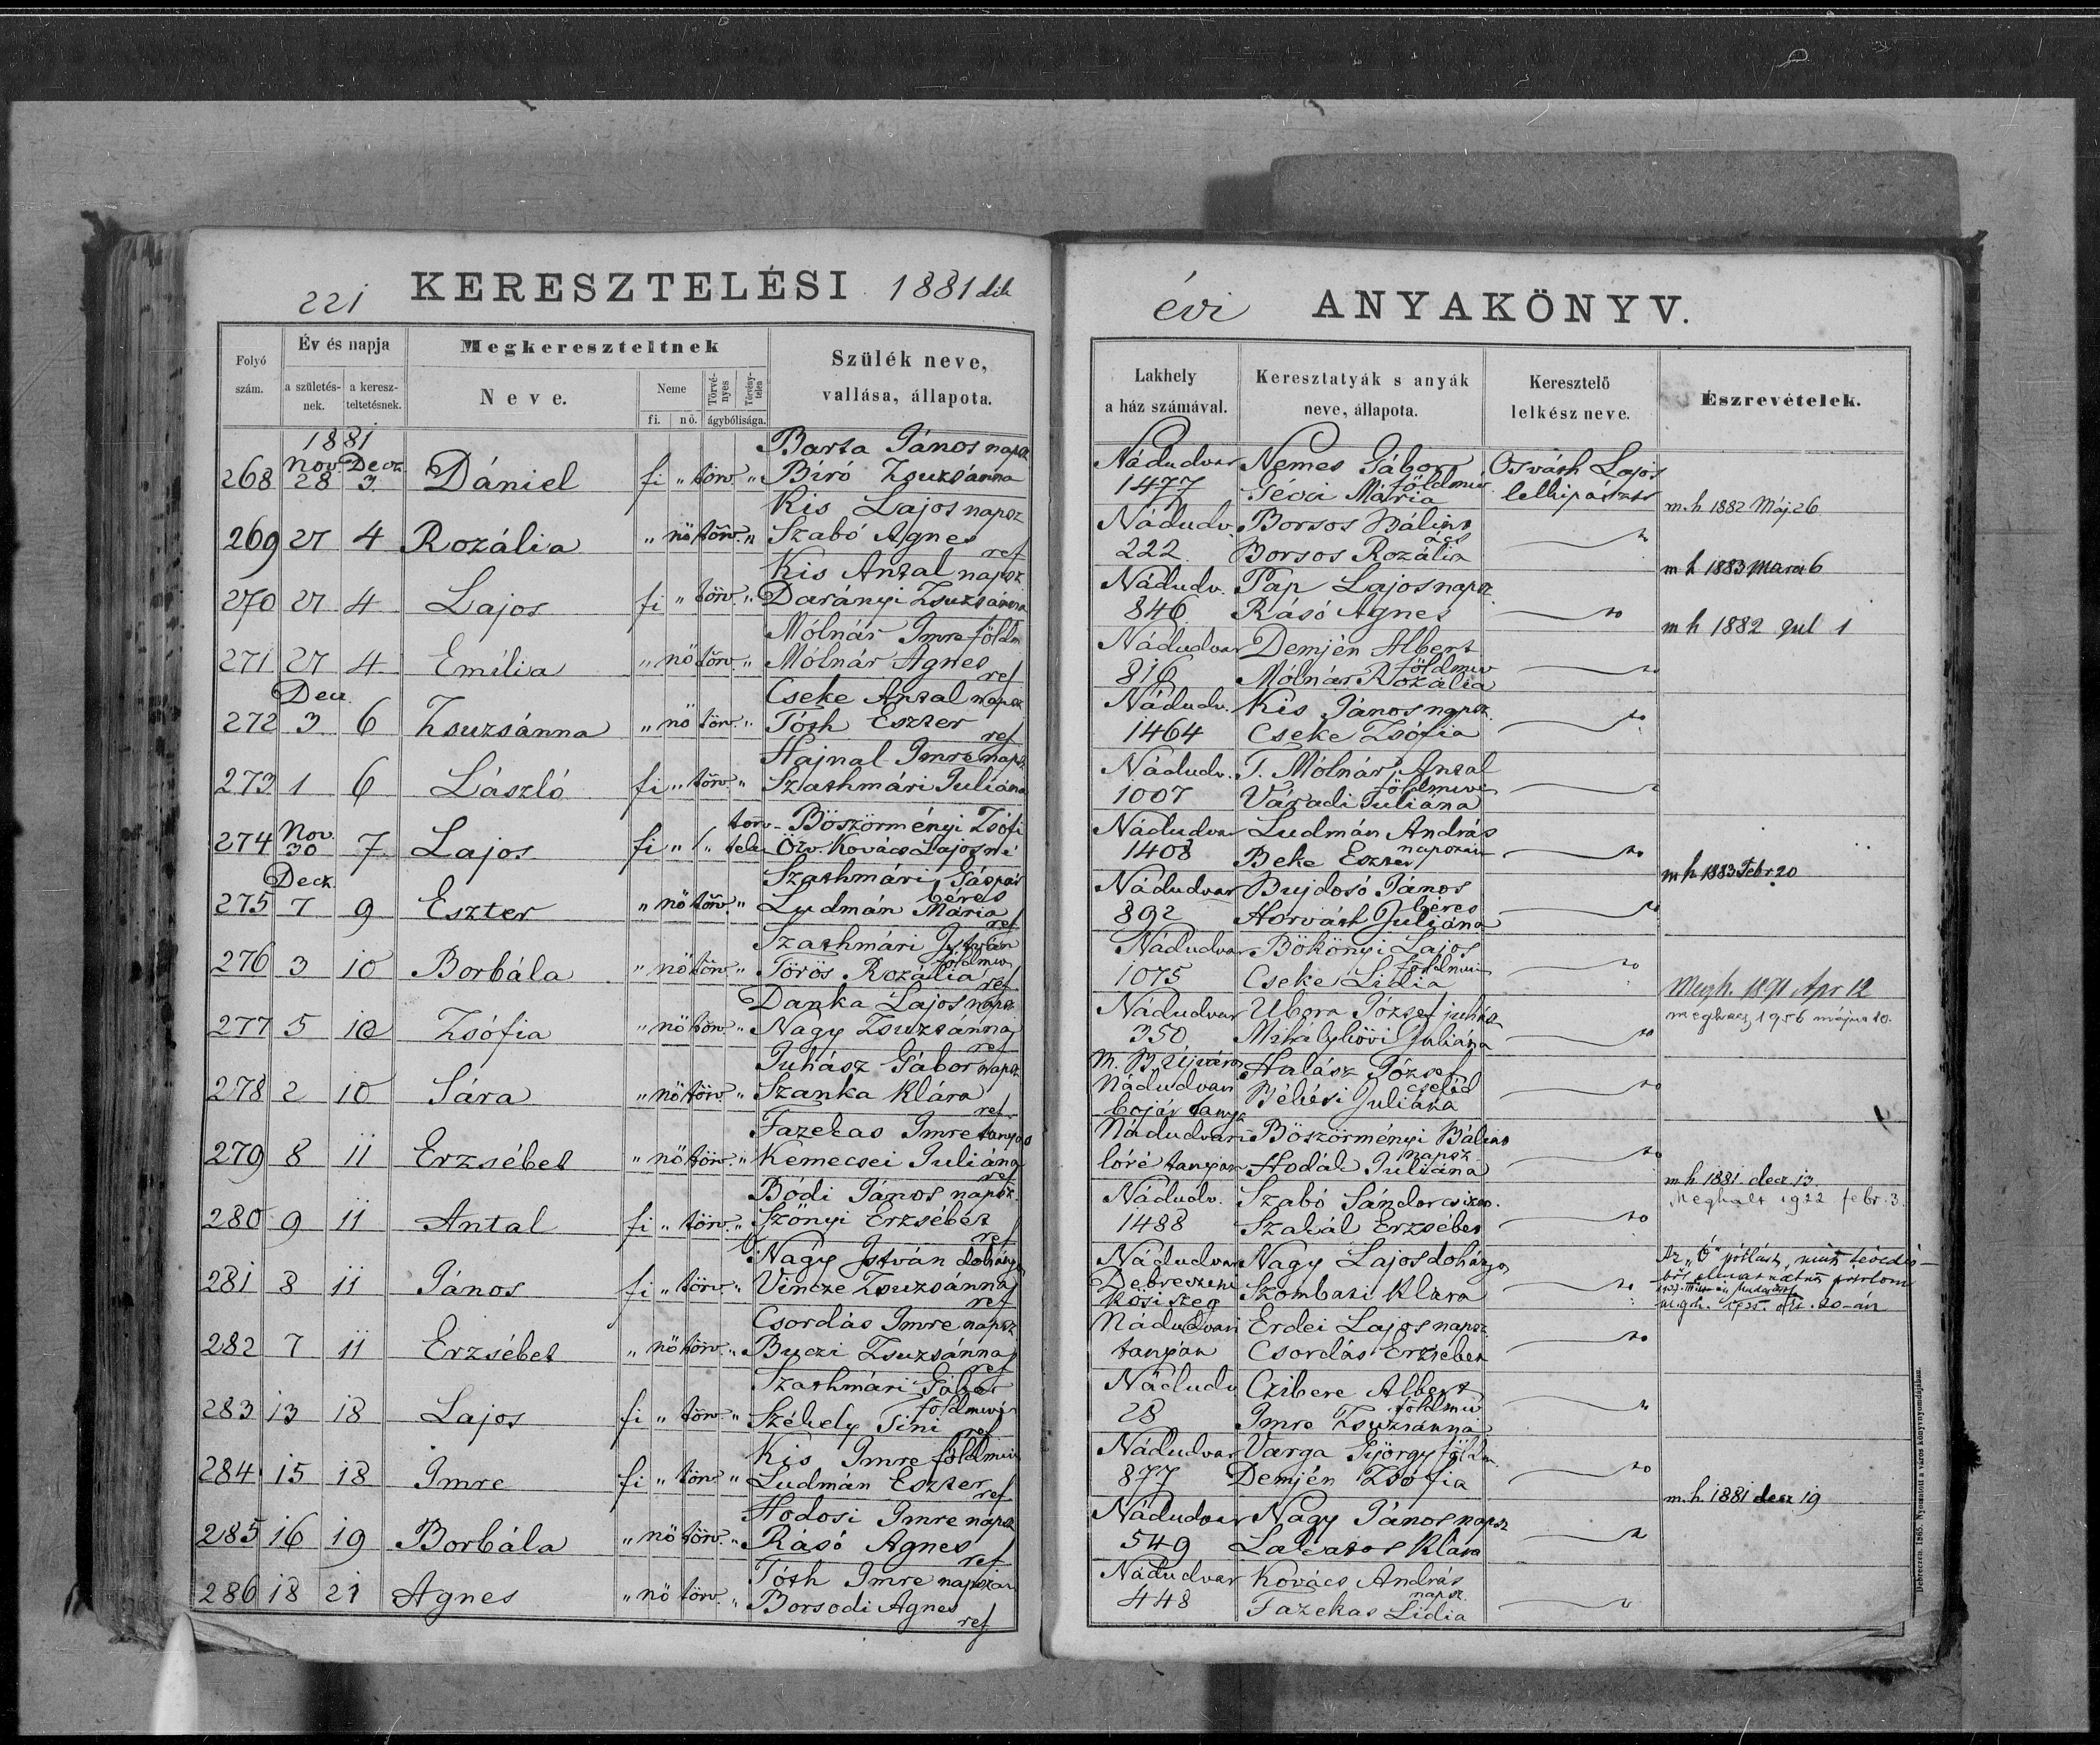 221 KERESZTELÉSI 1881dik
évi ANYAKÖNYV.
Folyó szám.
Év és napja
a születésnek.
a kereszteltetésnek.
Megkereszteltnek
Neve.
Neme
fi. nő.
Törvényes
Törvénytelen
ágybólisága.
Szülék neve,
vallása, állapota.
Lakhely
a ház számával.
Keresztatyák s anyák
neve, állapota.
Keresztelő
lelkész neve.
Észrevételek.
1881
Nov. Decz.
Barta János napsz
268 28 3. Dániel fi " törv. " Bíró Zsuzsánna
Nádudvar Nemes Gábor Osváth Lajos
földmiv
1477 Tévai Mária lelkipásztor
m.h 1882 Máj 26
Kis Lajos napsz
269 27 4 Rozália " nő törv. " Szabó Agnes
ref
Nádudv. Borsos Bálint
ács
222 Borsos Rozália
m h 1883 Marci 6
Kis Antal napsz
270 27 4 Lajos fi " törv. " Darányi Zsuzsánna
Nádudv. Pap Lajos napsz.
846 Rásó Agnes
m h 1882 Jul 1
Mólnár Imre földm
271 27 4 Emília " nő törv. " Mólnár Agnes
ref
Nádudvar Demjén Albert
földmiv
816 Mólnár Rozália
Decz.
Cseke Antal napsz
272 3 6 Zsuzsánna " nő törv. " Tóth Eszter
ref
Nádudv. Kis János napsz.
1464 Cseke Zsófia
Hajnal Imre napsz.
273 1 6 László fi " törv. " Szathmári Juliána
Nádudv. T. Mólnár Antal
földmiv
1007 Váradi Juliána
Nov.
törv- Böszörményi Zsófi
274 30 7 Lajos fi " telen Özv. Kovács Lajosné
Nádudvar Ludmán András
napszám
1408 Beke Eszter
m h 1883 Febr 20
Decz.
Szathmári Gáspár
béres
275 7 9 Eszter " nő törv. " Ludmán Mária
ref
Nádudvar Bujdosó János
béres
892 Horváth Juliána
Szathmári István
földmiv
276 3 10 Borbála " nő törv. " Törös Rozália
ref
Nádudvar Bökönyi Lajos
földmiv
1075 Cseke Lidia
Megh. 1891 Apr 12
Danka Lajos napsz
277 5 10 Zsófia " nő törv. " Nagy Zsuzsánna
ref
Nádudvar Ubora József juhász
350 Mihályhövi Juliána
megh 1956 május 10.
Juhász Gábor napsz
278 2 10 Sára " nő törv. " Szanka Klára
ref
M. B. Ujváros Halász József
cseléd
Nádudvari Békési Juliána
boján tanya
Fazekas Imre tanyás
279 8 11 Erzsébet " nő törv. " Kemecsei Juliána
ref
Nádudvari Böszörményi Bálint
napsz
lóré tanyán Hodák Juliána
m h 1881 decz 13.
Bódi János napsz.
280 9 11 Antal fi " törv. " Szőnyi Erzsébet
ref
Nádudv. Szabó Sándor csizm.
1488 Szakál Erzsébet
Meghalt 1922 febr. 3.
Ó Nagy István dohány
281 8 11 János fi " törv. " Vincze Zsuzsánna
ref
Nádudvar Nagy Lajos dohányos
Debreczeni Szombati Klára
Kösi szeg
Az "Ó" pótlást, mint tévedés-
megh. 1925. 20-án
Csordás Imre napsz
282 7 11 Erzsébet " nő törv. " Buczi Zsuzsánna
ref
Nádudvari Erdei Lajos napsz.
tanyán Csordás Erzsébet
Szathmári Gábor
földmivs
283 13 18 Lajos fi " törv. " Székely Tini
ref
Nádudv Czibere Albert
földmiv
28 Imre Zsuzsánna
Kis Imre földmiv
284 15 18 Imre fi " törv " Ludmán Eszter
ref
Nádudvar Varga György földm
877 Demjén Zsófia
m.h. 1881 decz 19
Hodosi Imre napsz
285 16 19 Borbála " nő törv. " Rásó Agnes
ref
Nádudvar Nagy János napsz
549 Lakatos Klára
Tóth Imre napszám
286 18 21 Agnes " nő törv. " Borsodi Agnes
ref
Nádudvar Kovács András
napsz.
448 Fazekas Lidia
Debreczen. 1865. Nyomtatott a város könyvnyomdájában.